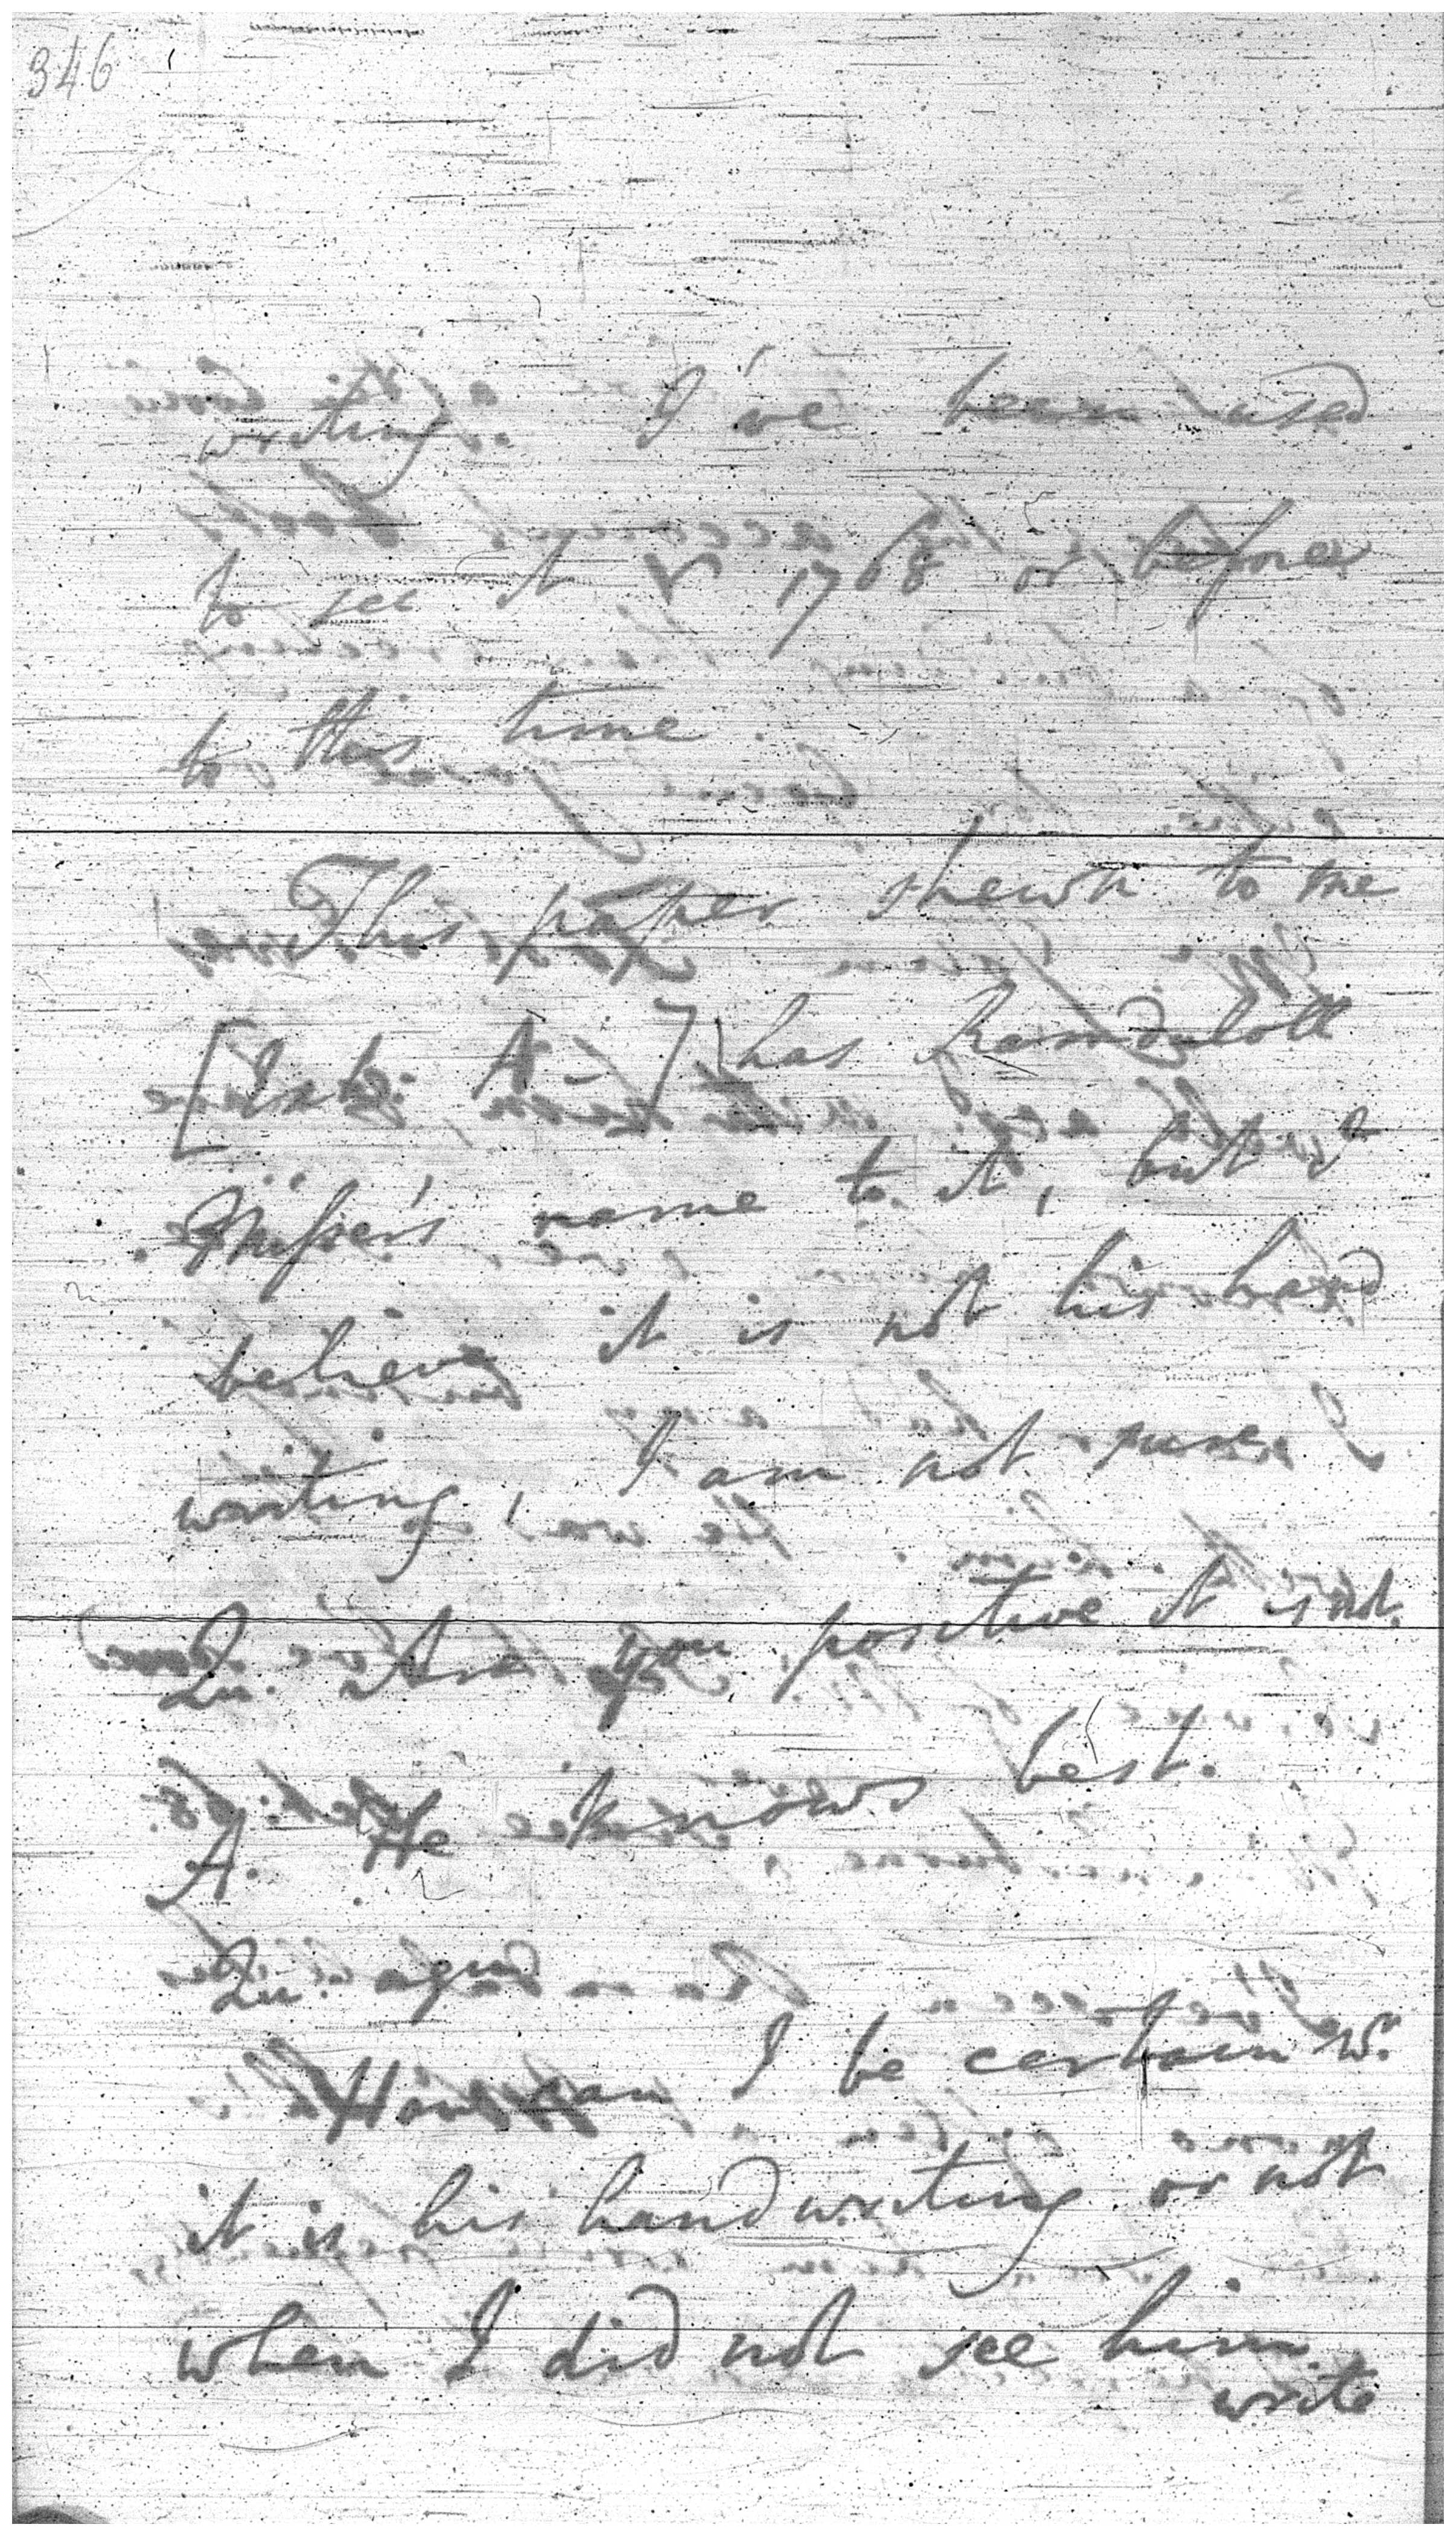 346
writing. I've been used
to see it 1768 or before
to this time.
This paper shewn to me
[Exh: A -] has
name to it, but I
believe it is not his hand
writing, I am not sure.
Qu. Are you positive it is not.
A. He knows best.
Qu.
How can I be certain wr.
it is his handwriting or not
when I did not see him
write